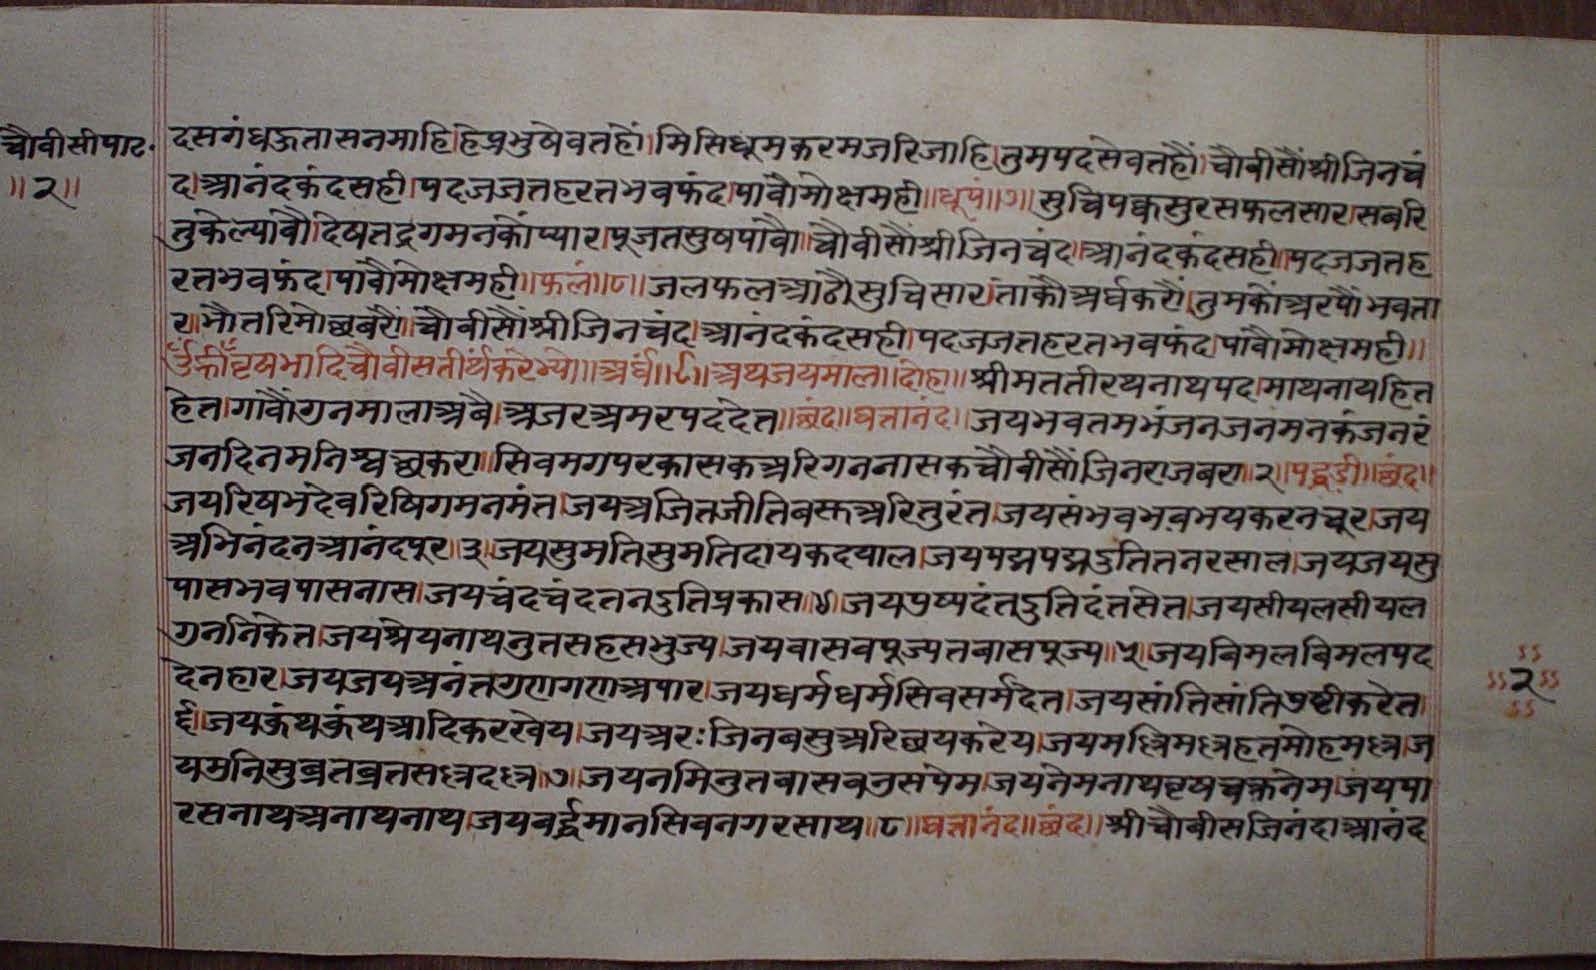 चौवीसीपाट.
॥२॥
दसगंधहुतासनमाहि।हेप्रभुषेवतहौं॥मिसिधूमकरमजरिजाहि।तुमपदसेवतहौं॥चौवीसौंश्रीजिनचं
द।आनंदकंदसही।पदजजतहरतभवफंद।पावौमोक्षमही॥धूपं॥७॥सुचिपक्वसुरसफलसार।सबरि
तुकेल्यावौ।देषतद्रगमनकौंप्यार।पूजतसुषपावौ॥चौवीसौंश्रीजिनचंद।आनंदकंदसही।पदजजतह
रतभवफंद।पावौमोक्षमही॥फलं॥८॥जलफलआठौसुचिसार।ताकौअर्घकरौं।तुमकौंअरपौंभवता
र।भौतरिमोछबरौं॥चौवीसौंश्रीजिनचंद।आनंदकंदसही।पदजजतहरतभवफंद।पावौमोक्षमही॥
ॐह्रींवृषभादिचौवीसतीर्थंकरेभ्यो॥अर्घं॥९॥अथजयमाल॥दोहा॥श्रीमततीरथनाथपद।माथनायहित
हेत।गावौंगुनमालाअबै।अजरअमरपददेत॥छंद॥घत्तानंद॥जयभवतमभंजनजनमनकंजनरं
जनदिनमनिश्वछकरा॥सिवमगपरकासकअरिगननासकचौवीसौंजिनराजबरा॥२॥पद्धडी॥छंद॥
जयरिषभदेवरिषिगमनमंत।जयअजितजीतिबसुअरितुरंत।जयसंभवभवभयकरनचूर।जय
अभिनंदनआनंदपूर॥३॥जयसुमतिसुमतिदायकदयाल।जयपद्मपद्मदुतितनरसाल।जयजयसु
पासभवपासनास।जयचंदचंदतनदुतिप्रकास॥४॥जयपुष्पदंतदुतिदंतसेत।जयसीयलसीयल
गुननिकेत।जयश्रेयनाथनुतसहसभुज्य।जयवासवपूज्यतबासपूज्य॥५॥जयबिमलबिमलपद
देनहार।जयजयअनंतगुणगणअपार।जयधर्मधर्मसिवसर्मदेत।जयसांतिसांतिपुष्टीकरेत।
६।जयकुंथकुंथआदिकरखेय।जयअरःजिनबसुअरिछयकरेय।जयमल्लिमल्लहतमोहमल्ल।ज
यमुनिसुव्रतव्रतसल्लदल्ल॥७॥जयनमिनुतबासवनुसपेम।जयनेमनाथवृषचक्रनेम।जयपा
रसनाथअनाथनाथ।जयबर्द्धमानसिवनगरसाथ॥८॥घत्तानंद॥छंद॥श्रीचौबीसजिनंदाआनंद
२